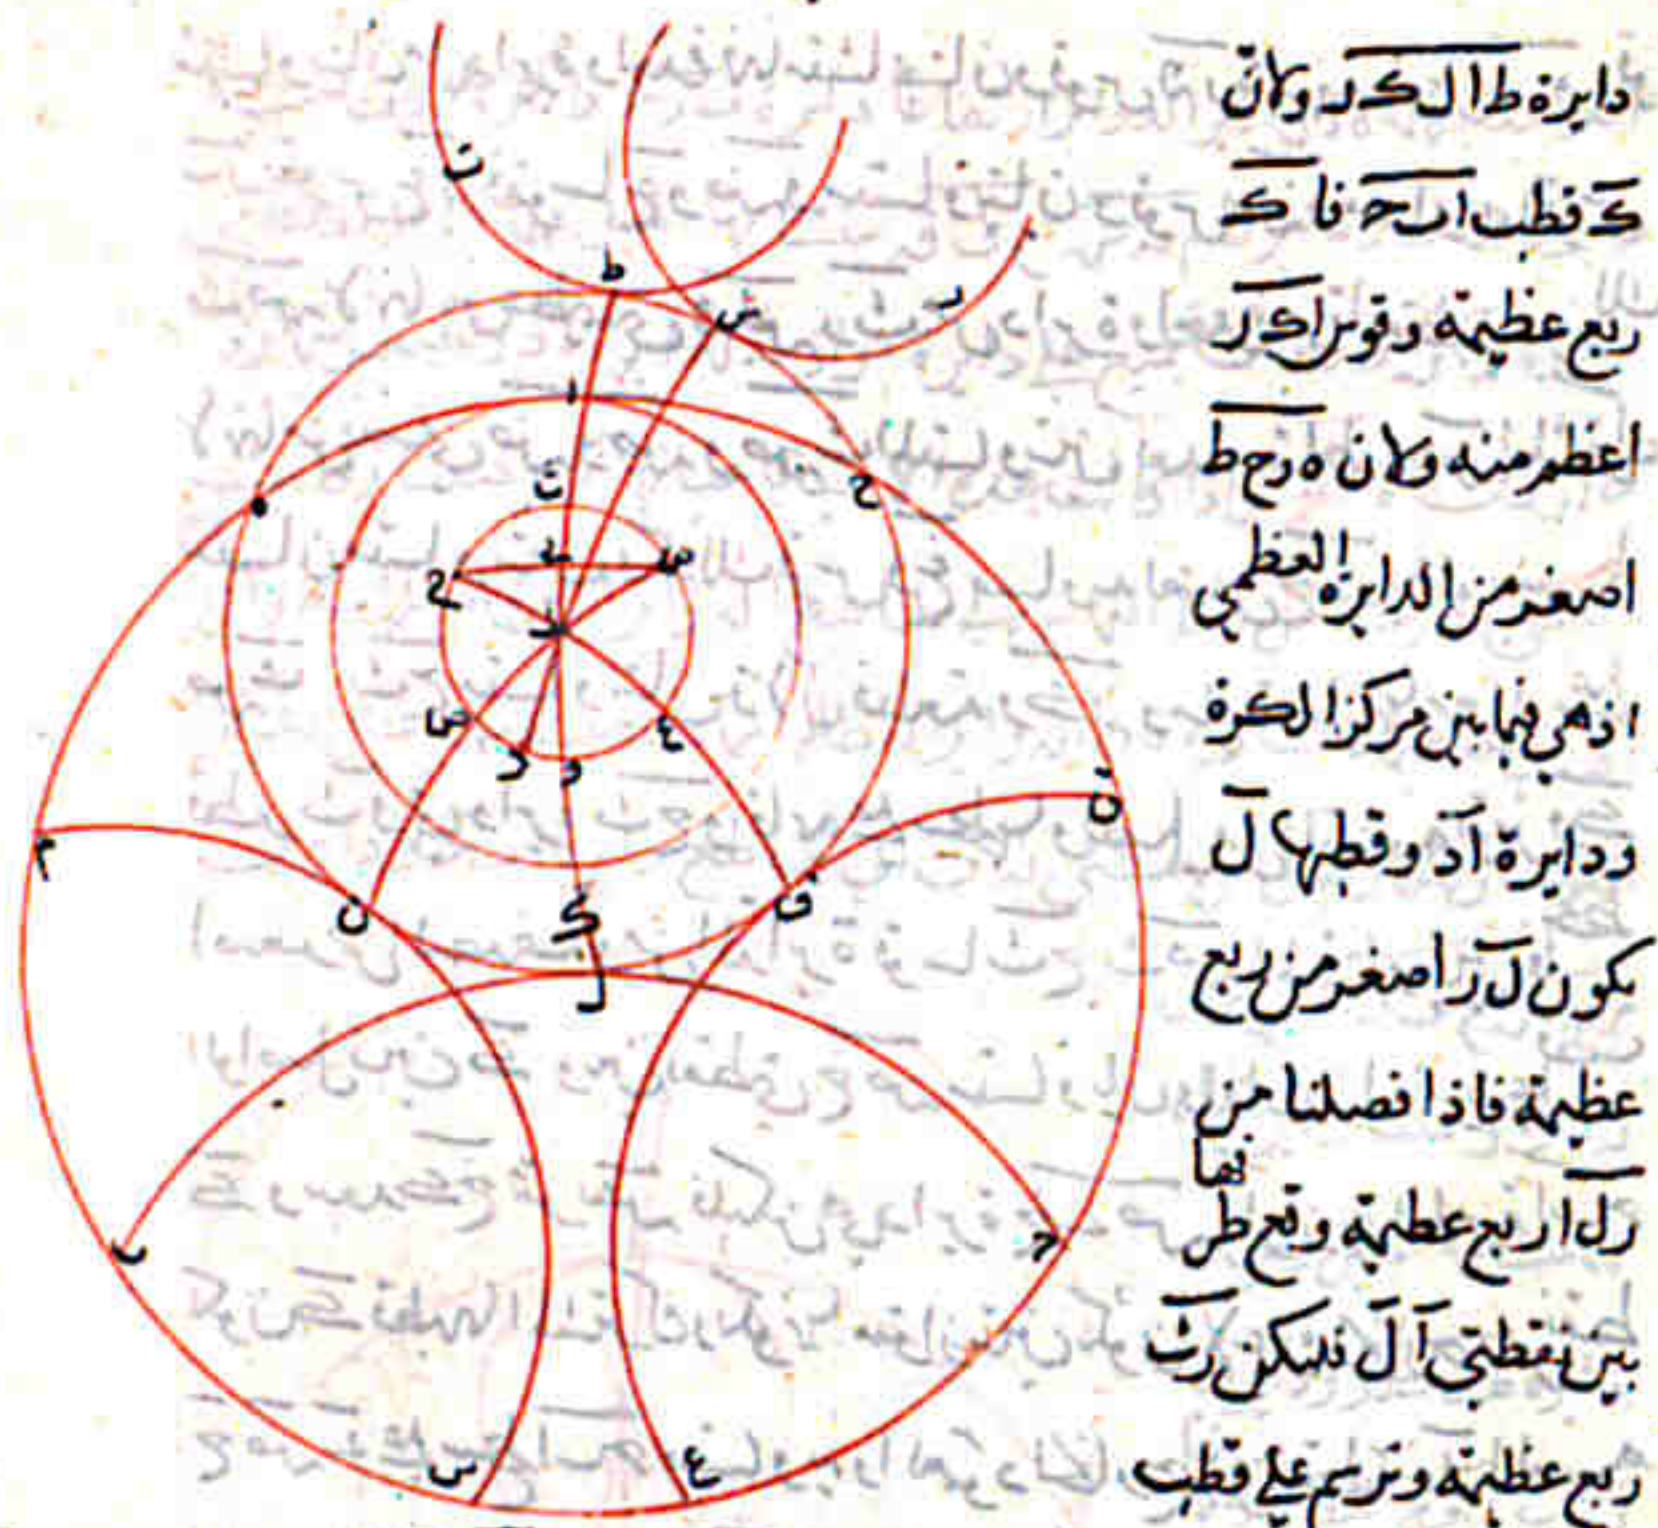 دايرة ط ا ل ک د ولان
ک قطب ا ب ح فا ک
ربع عظيمة وقوس ا ک ر
اعظم منه ولان ه ر ح ط
اصغر من الدايرة العظمي
اذ هي فيما بين مركز الكرة
ودايرة آد وقطبها ل
يكون ل ر اصغر من ربع
عظيمة فاذا فصلنا من
ر ل ا ربع عظيمة وقع طرفها
بين نقطتي آ ل فليكن ر ث
ربع عظيمة ونرسم علي قطب
ت
ط
ش
ر
ا
ث
ه
ح
س
ص
ع
د
و
ن
م
ں
ک
ق
ل
ب
ح
س
ع